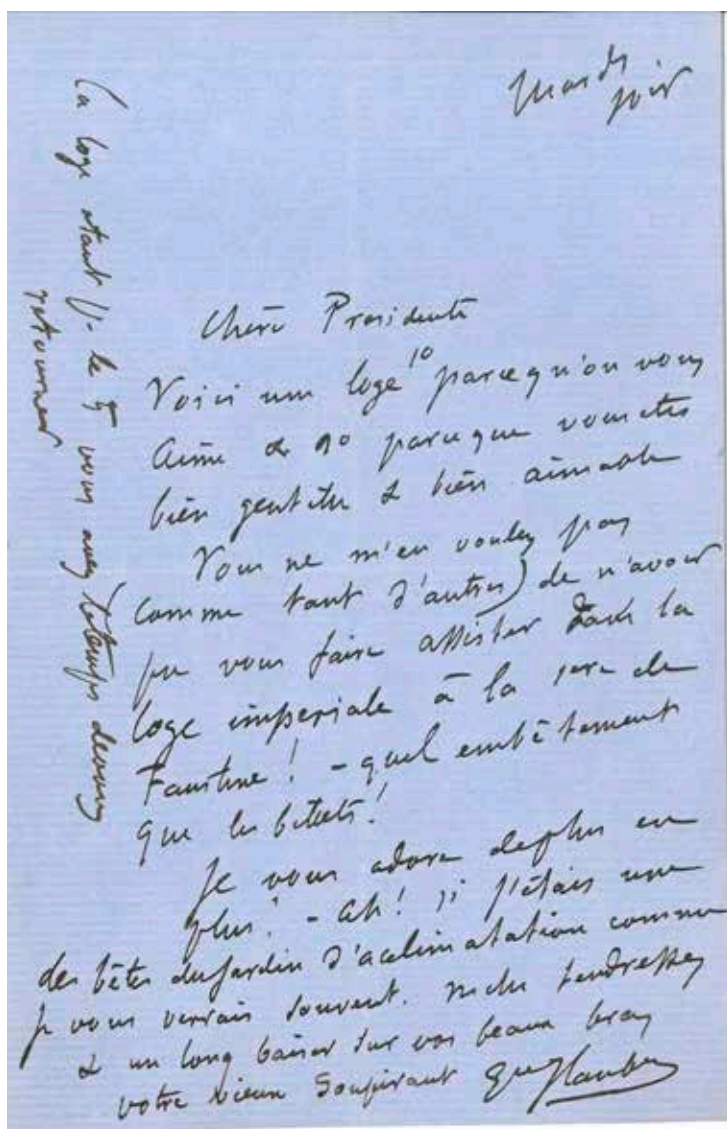 Mardi
soir
Chère Presidente
Voici une loge 1o parcequ'on vous
aime & 2o parceque vous etes
bien gentille & bien aimable
Vous ne m'en voulez pas
comme tant d'autres) de n'avoir
pu vous faire assister dans la
loge imperiale à la 1ere de
Faustine! - quel embêtement
que les billets!
Je vous adore deplus en
plus! - Ah! si j'étais une
des bêtes dujardin d'aclimatation comme
je vous verrais souvent. mille tendresses
& un long baiser sur vos beaux bras
votre vieux Soupirant Gve Flaubert
La loge étant p. le 5 vous avez letemps devous
retourner